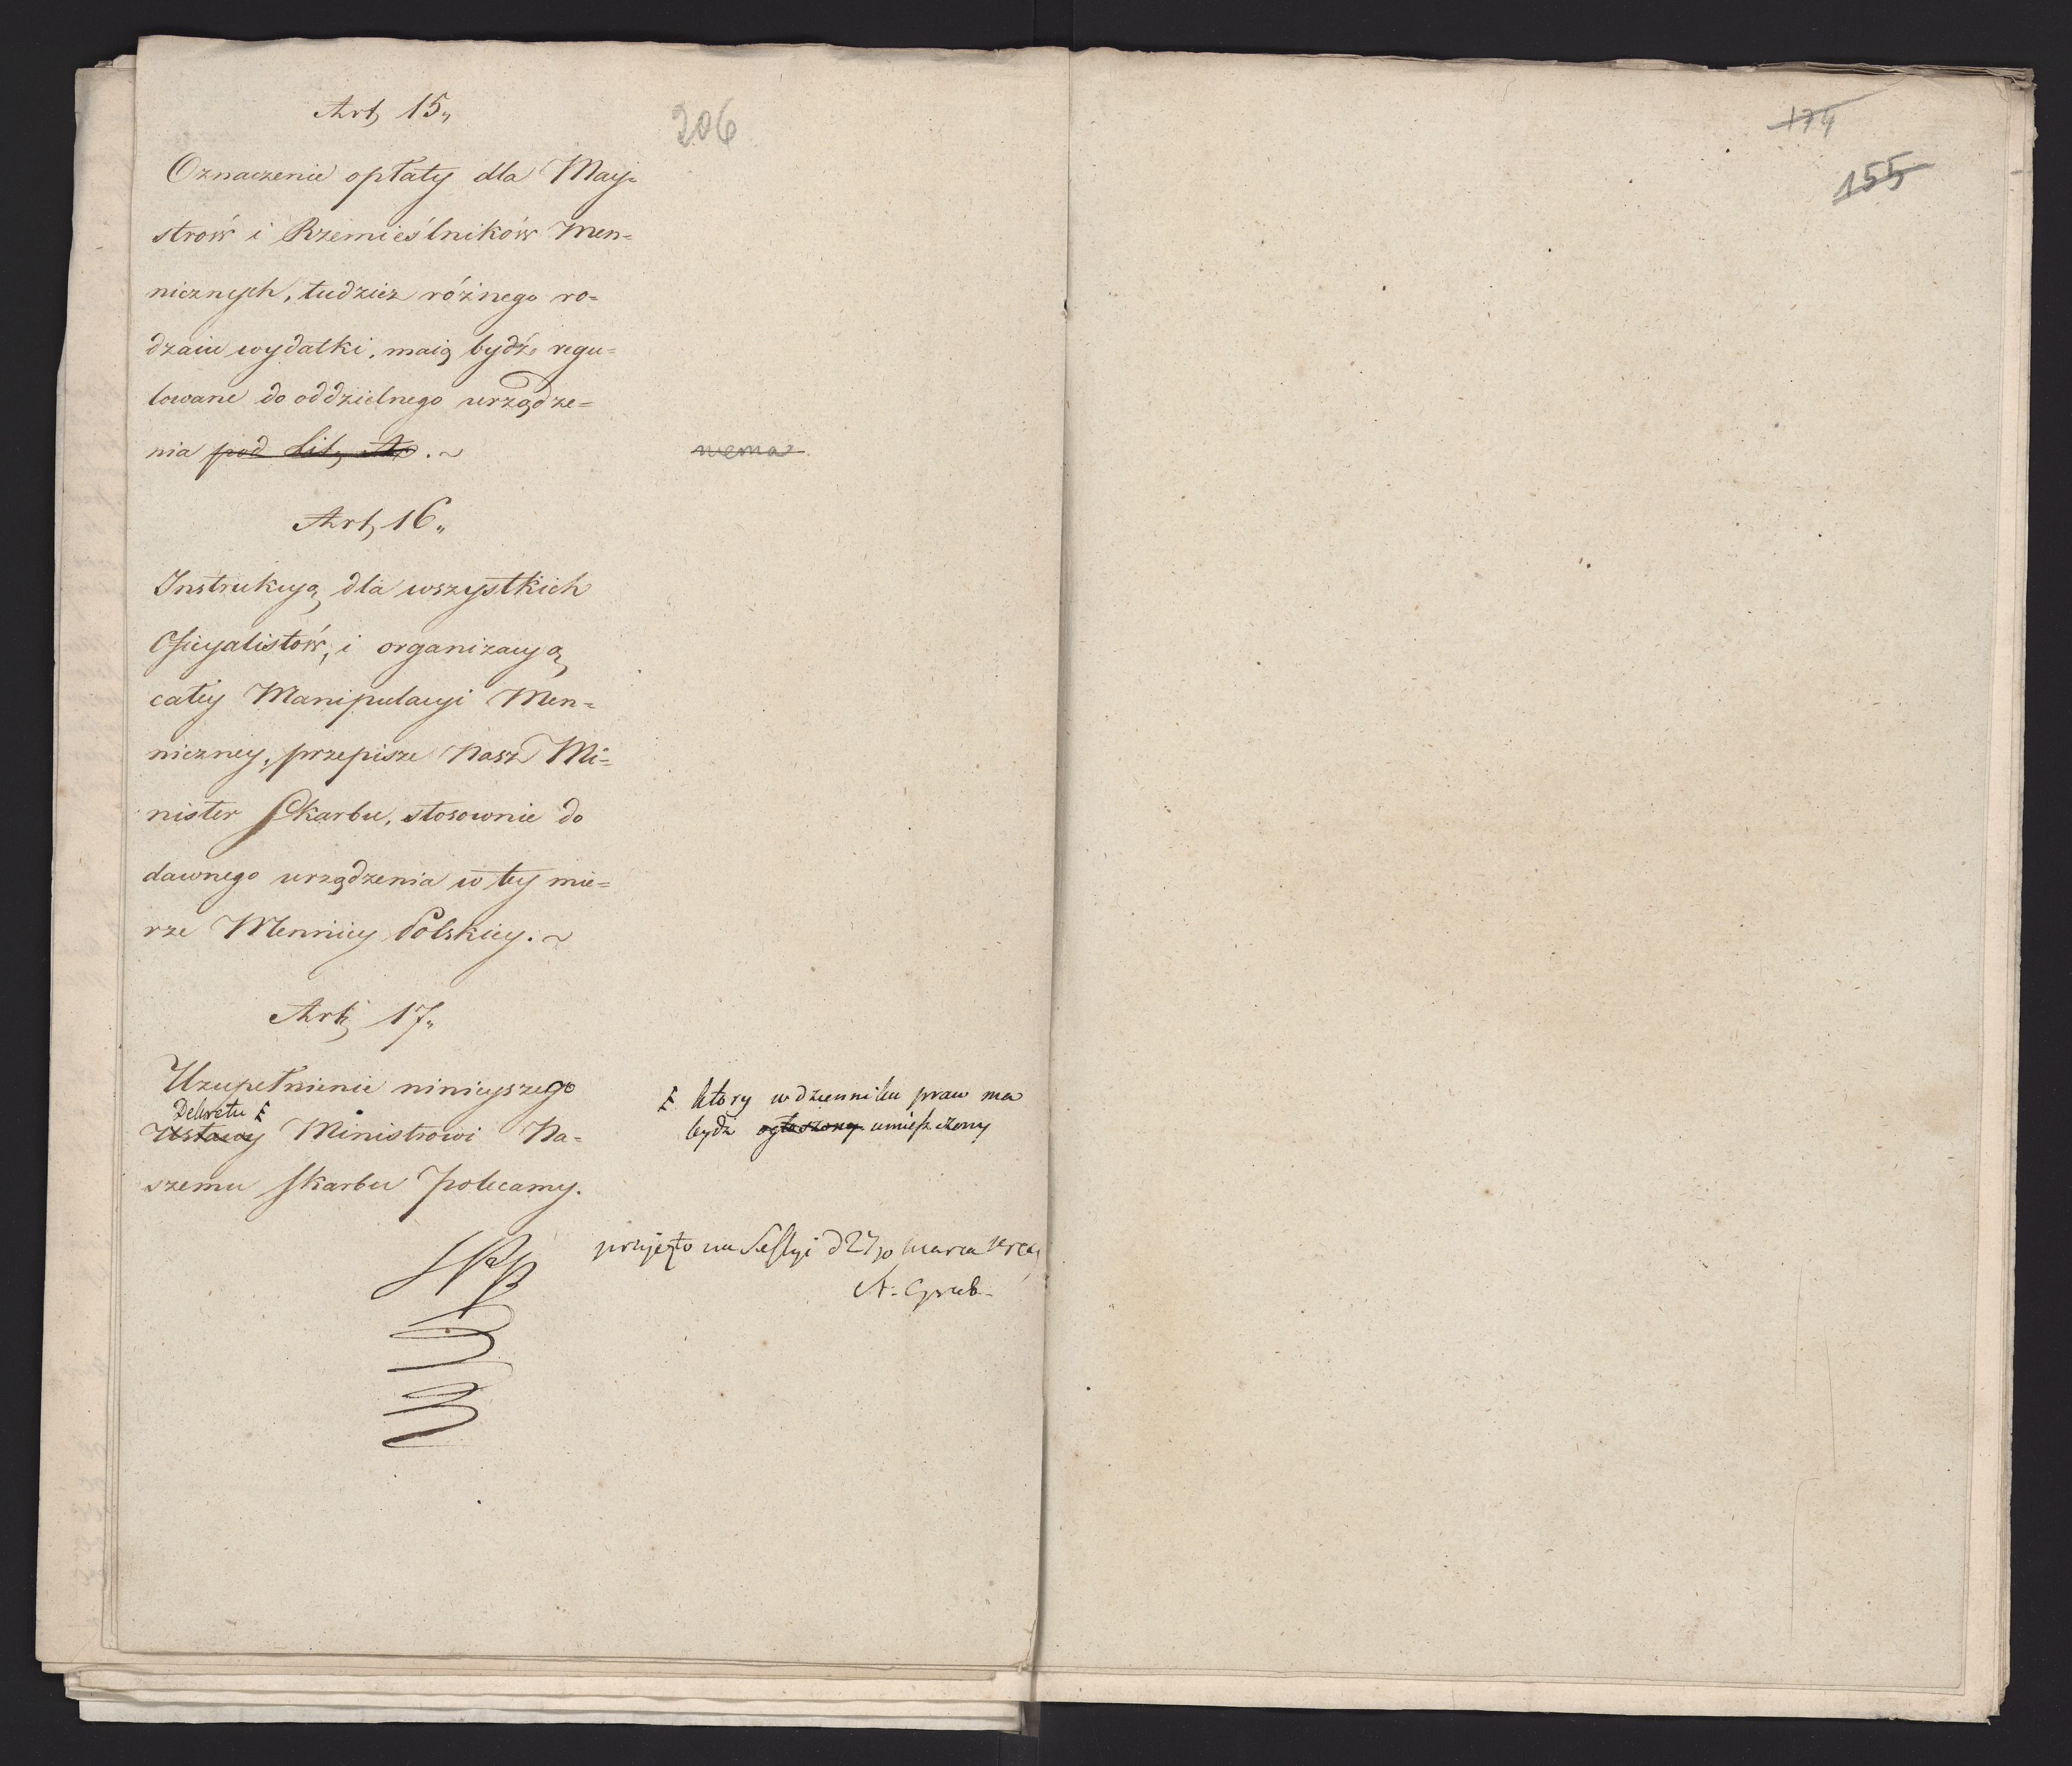 206
Art, 15„
Oznaczenie opłaty dla May-
strow i Rzemieślników Men=
nicznych, tudzież różnego ro=
dzaiu wydatki, maią bydź regu=
lowane do oddzielnego urządze=
nia pod Lit, A. ~
nema
Art, 16„
Instrukcyą dla wszystkich
Oficyalistów, i organizacyą
całey Manipulacyi Men=
niczney, przepisze Nasz Mi=
nister Skarbu, stosownie do
dawnego urządzenia w tey mie=
rze Mennicy Polskiey. ~
Art, 17„
Uzupełnienie ninieyszego
Dekretu ⨍
Ustawy Ministrowi Na=
szemu Skarbu polecamy.
⨍ ktory w dzienniku praw ma
bydz ogłoszony umieszczony
przyięto na Sessyi d 27 marca
A. Grab-
174
155